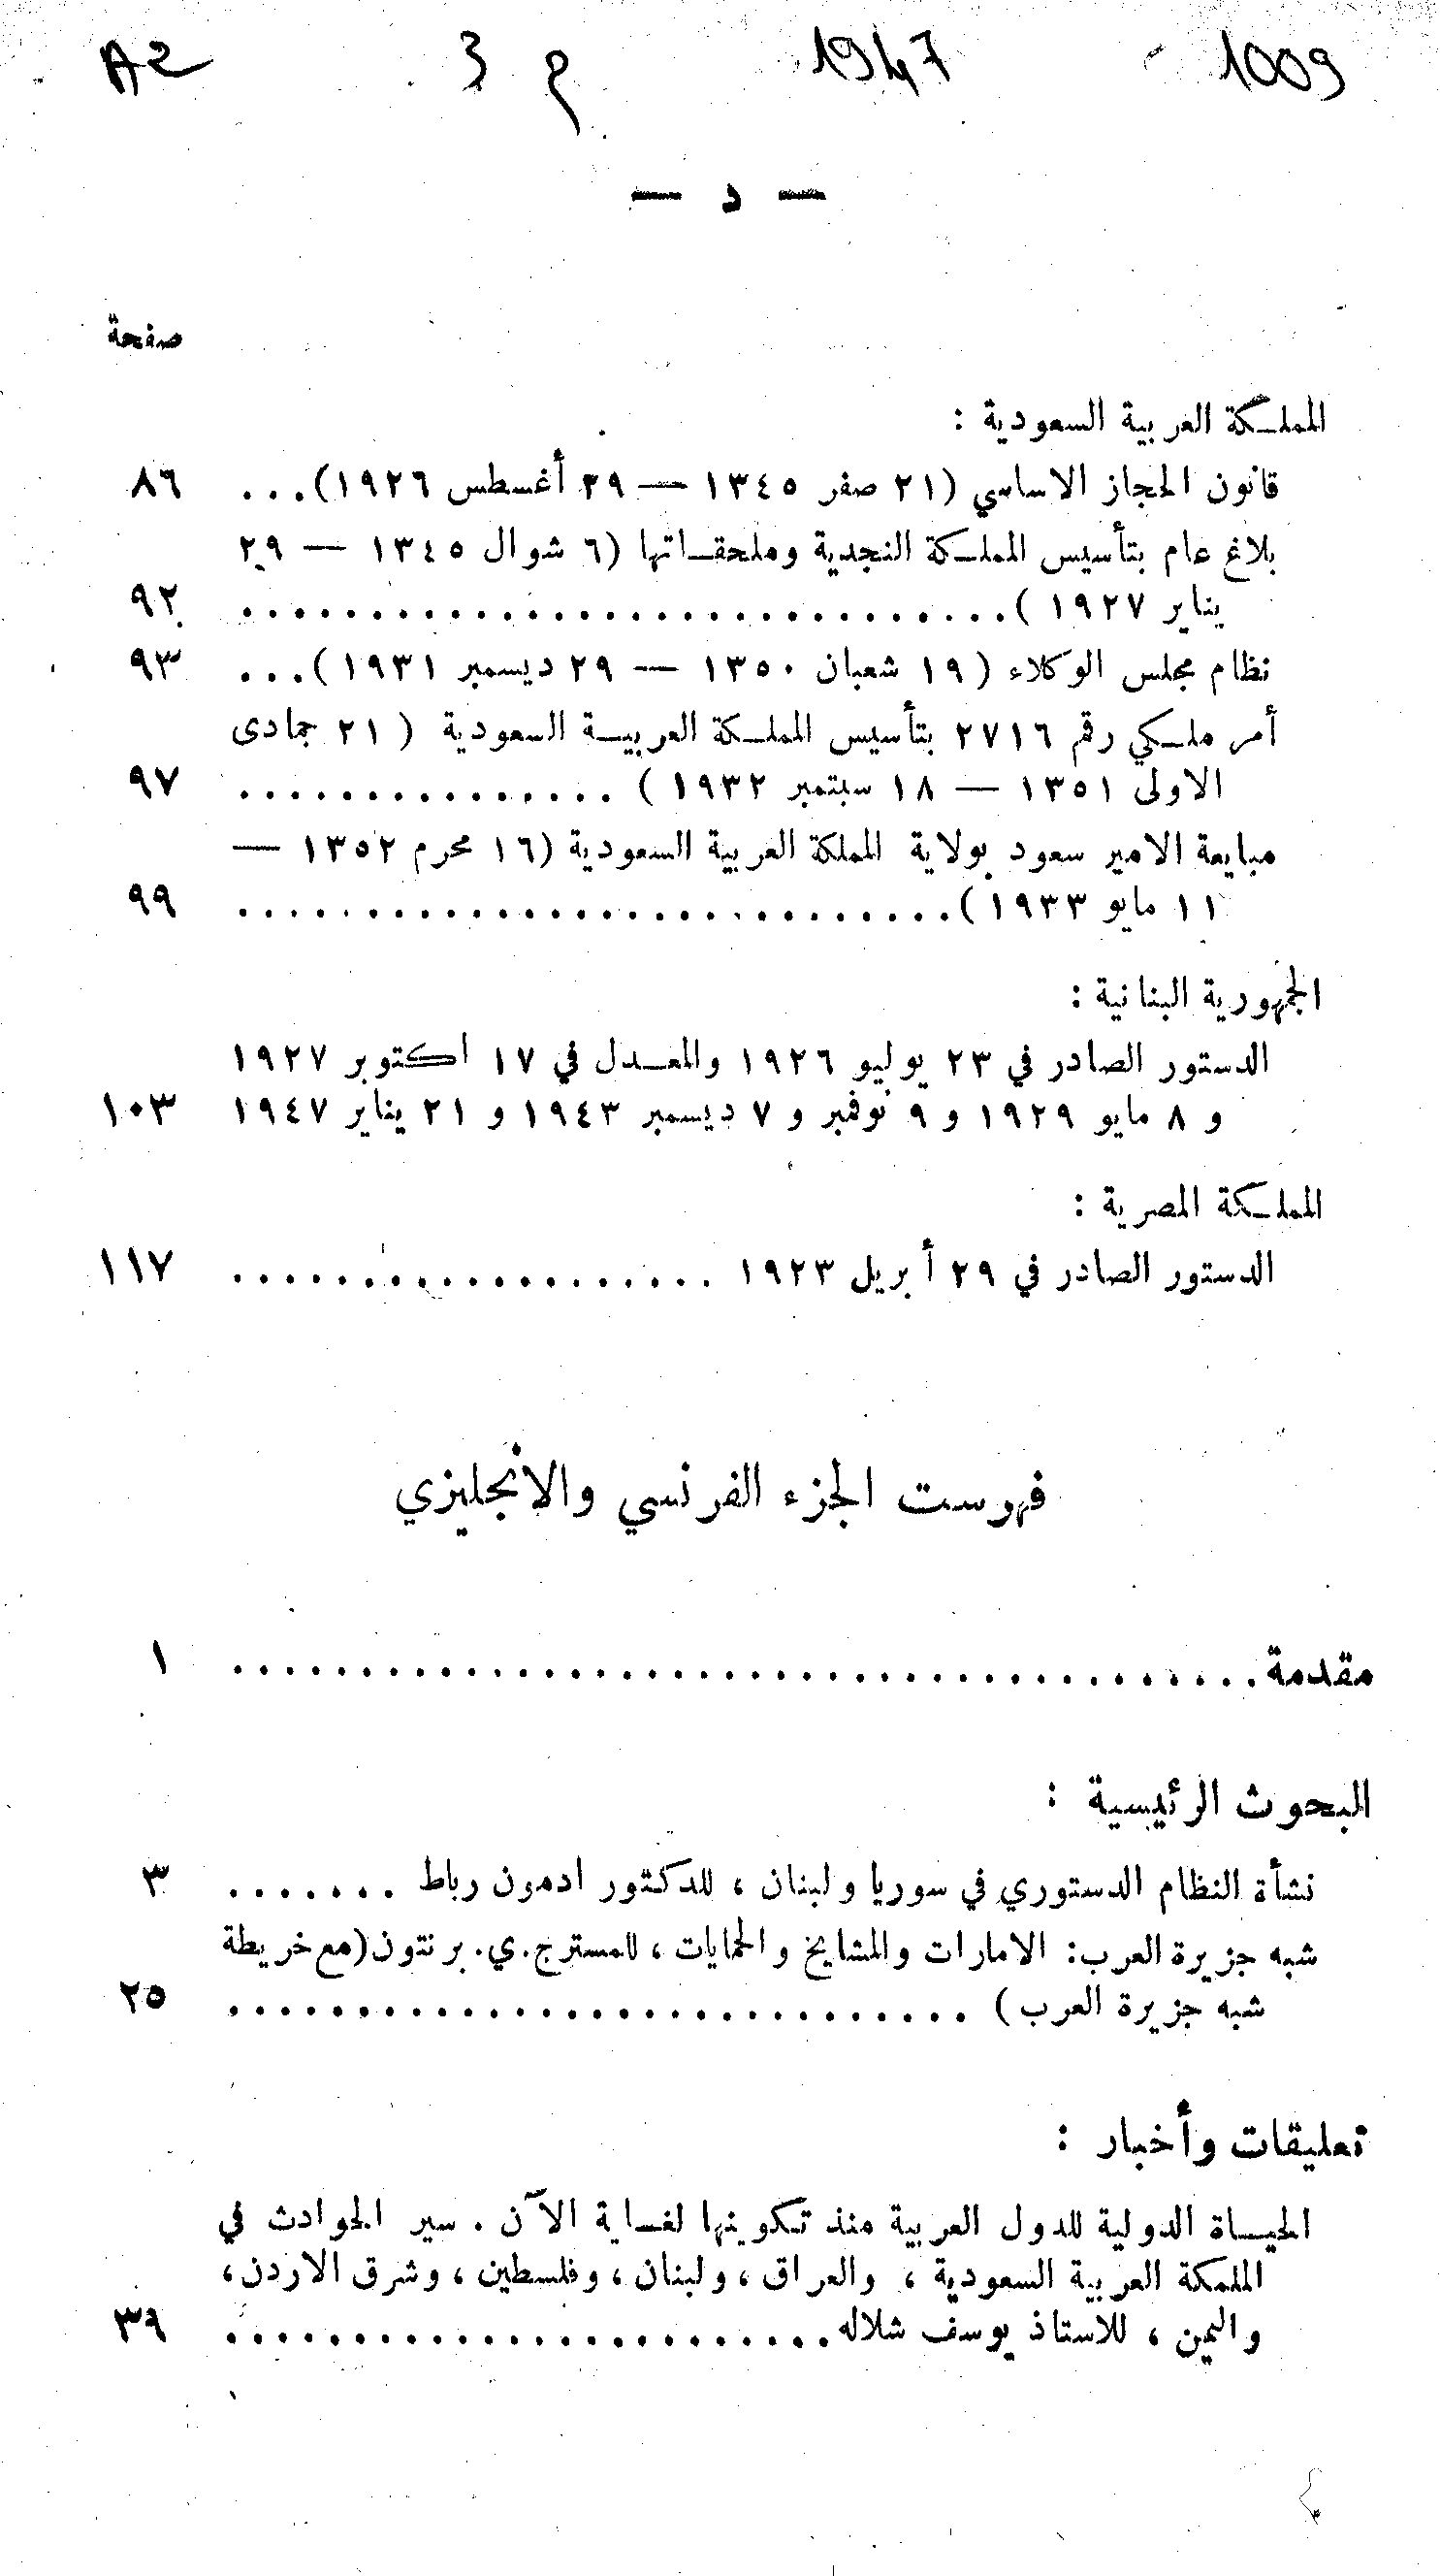 A2 3 م 1947 1009
— د —
صفحة
المملكة العربية السعودية :
قانون الحجاز الاساسي (٢١ صفر ١٣٤٥ — ٢٩ أغسطس ١٩٢٦)... ٨٦
بلاغ عام بتأسيس المملكة النجدية وملحقاتها (٦ شوال ١٣٤٥ — ٢٩
يناير ١٩٢٧ ).............................. ٩٢
نظام مجلس الوكلاء (١٩ شعبان ١٣٥٠ — ٢٩ ديسمبر ١٩٣١)... ٩٣
أمر ملكي رقم ٢٧١٦ بتأسيس المملكة العربية السعودية ( ٢١ جمادى
الاولى ١٣٥١ — ١٨ سبتمبر ١٩٣٢ ) ............... ٩٧
مبايعة الامير سعود بولاية المملكة العربية السعودية (١٦ محرم ١٣٥٢ —
١١ مايو ١٩٣٣ )............................ ٩٩
الجمهورية البنانية :
الدستور الصادر في ٢٣ يوليو ١٩٢٦ والمعدل في ١٧ اكتوبر ١٩٢٧
و ٨ مايو ١٩٢٩ و ٩ نوفمبر و ٧ ديسمبر ١٩٤٣ و ٢١ يناير ١٩٤٧ ١٠٣
المملكة المصرية :
الدستور الصادر في ٢٩ أبريل ١٩٢٣ ................... ١١٧
فهرست الجزء الفرنسي والانجليزي
مقدمة........................................ ١
البحوث الرئيسية :
نشأة النظام الدستوري في سوريا ولبنان ، للدكتور ادمون رباط ....... ٣
شبه جزيرة العرب: الامارات والمشايخ والحمايات ، للمستر ج.ي. برنتون (مع خريطة
شبه جزيرة العرب ) ............................. ٢٥
تعليقات وأخبار :
الحياة الدولية للدول العربية منذ تكوينها لغاية الآن . سير الحوادث في
الملمكة العربية السعودية ، والعراق ، ولبنان ، وفلسطين ، وشرق الاردن ،
واليمن ، للاستاذ يوسف شلاله........................ ٣٩